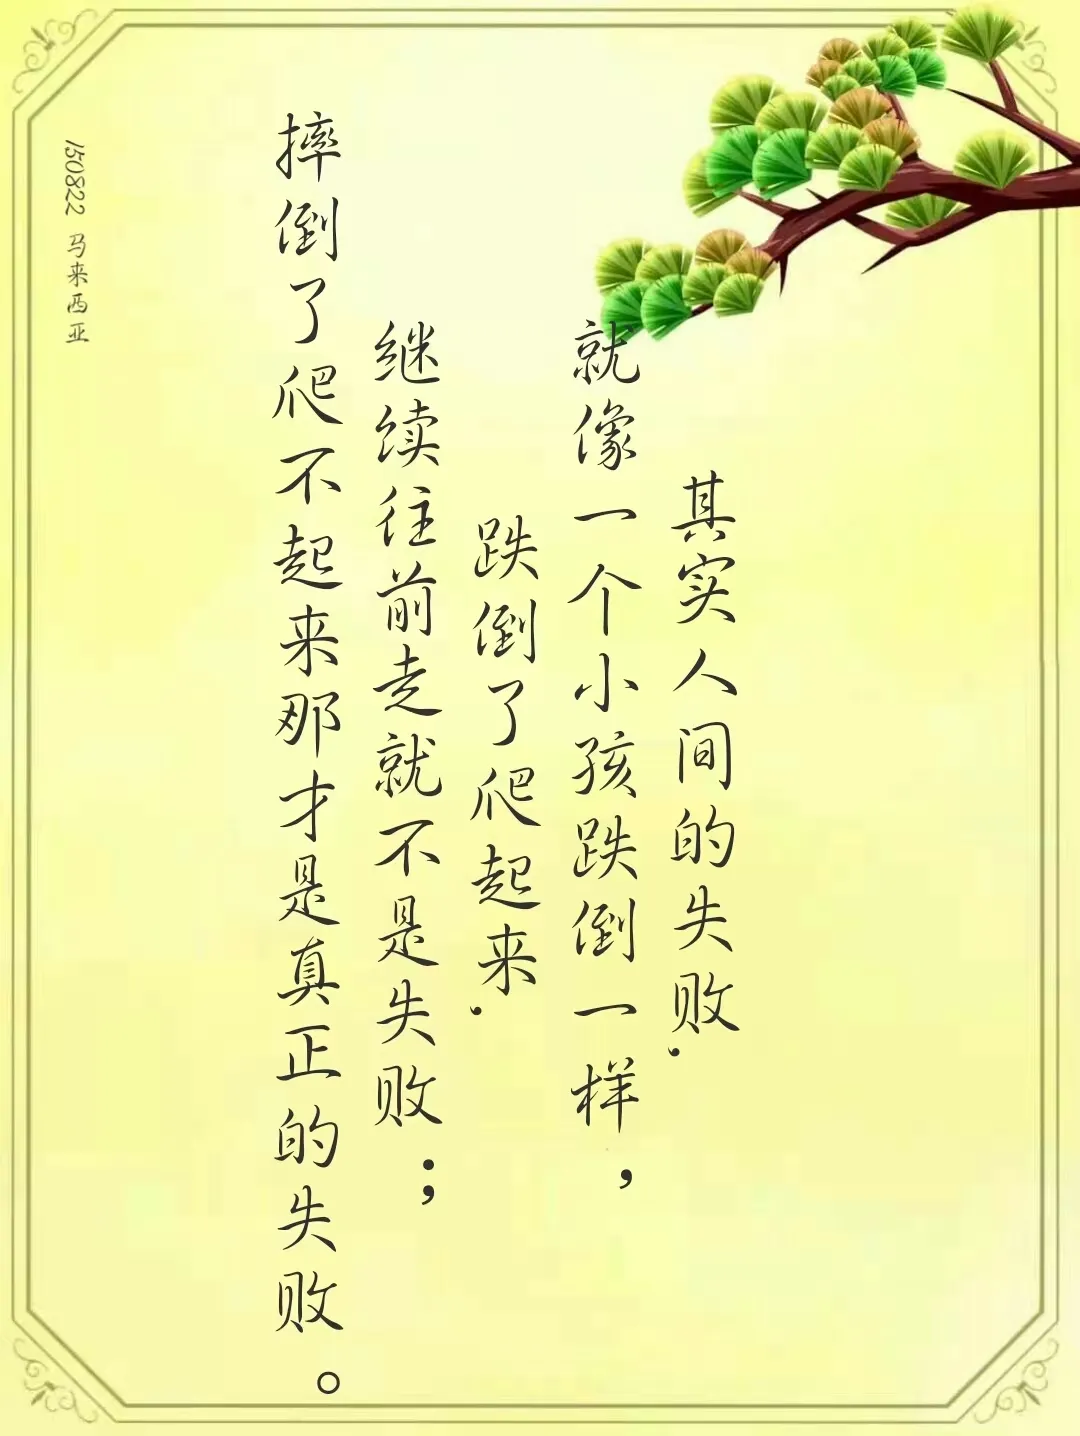 其实人间的失败.
就像一个小孩跌倒一样，
跌倒了爬起来.
继续往前走就不是失败；
摔倒了爬不起来那才是真正的失败。
150822 马来西亚